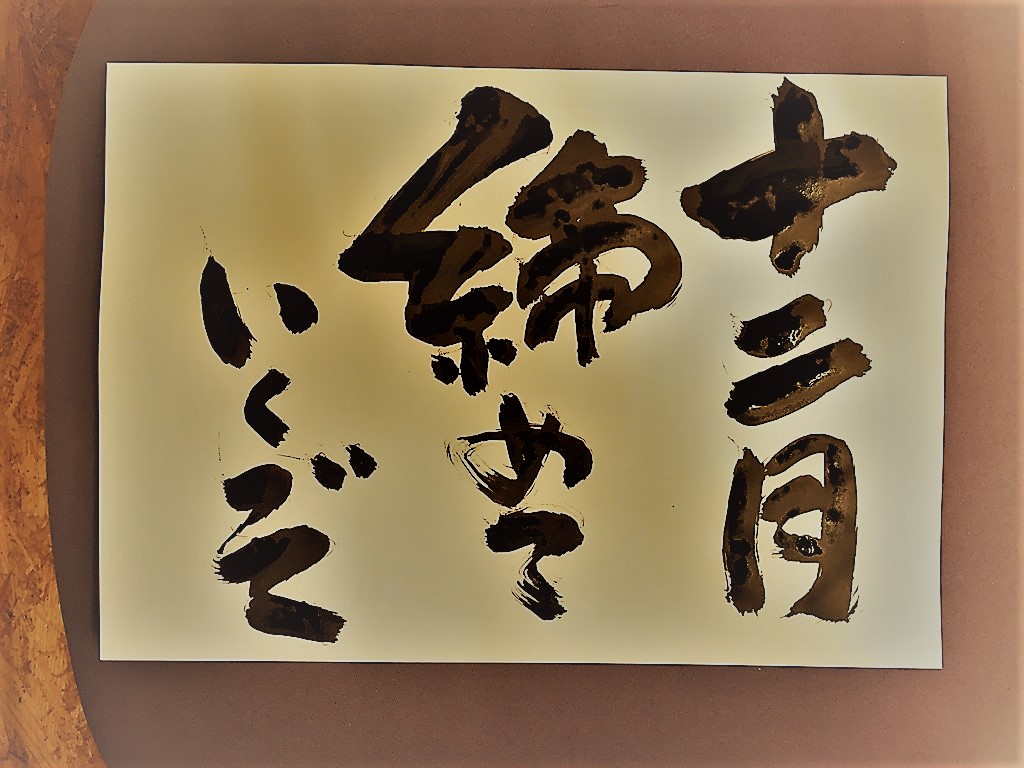 十二月
締めて
いくぞ